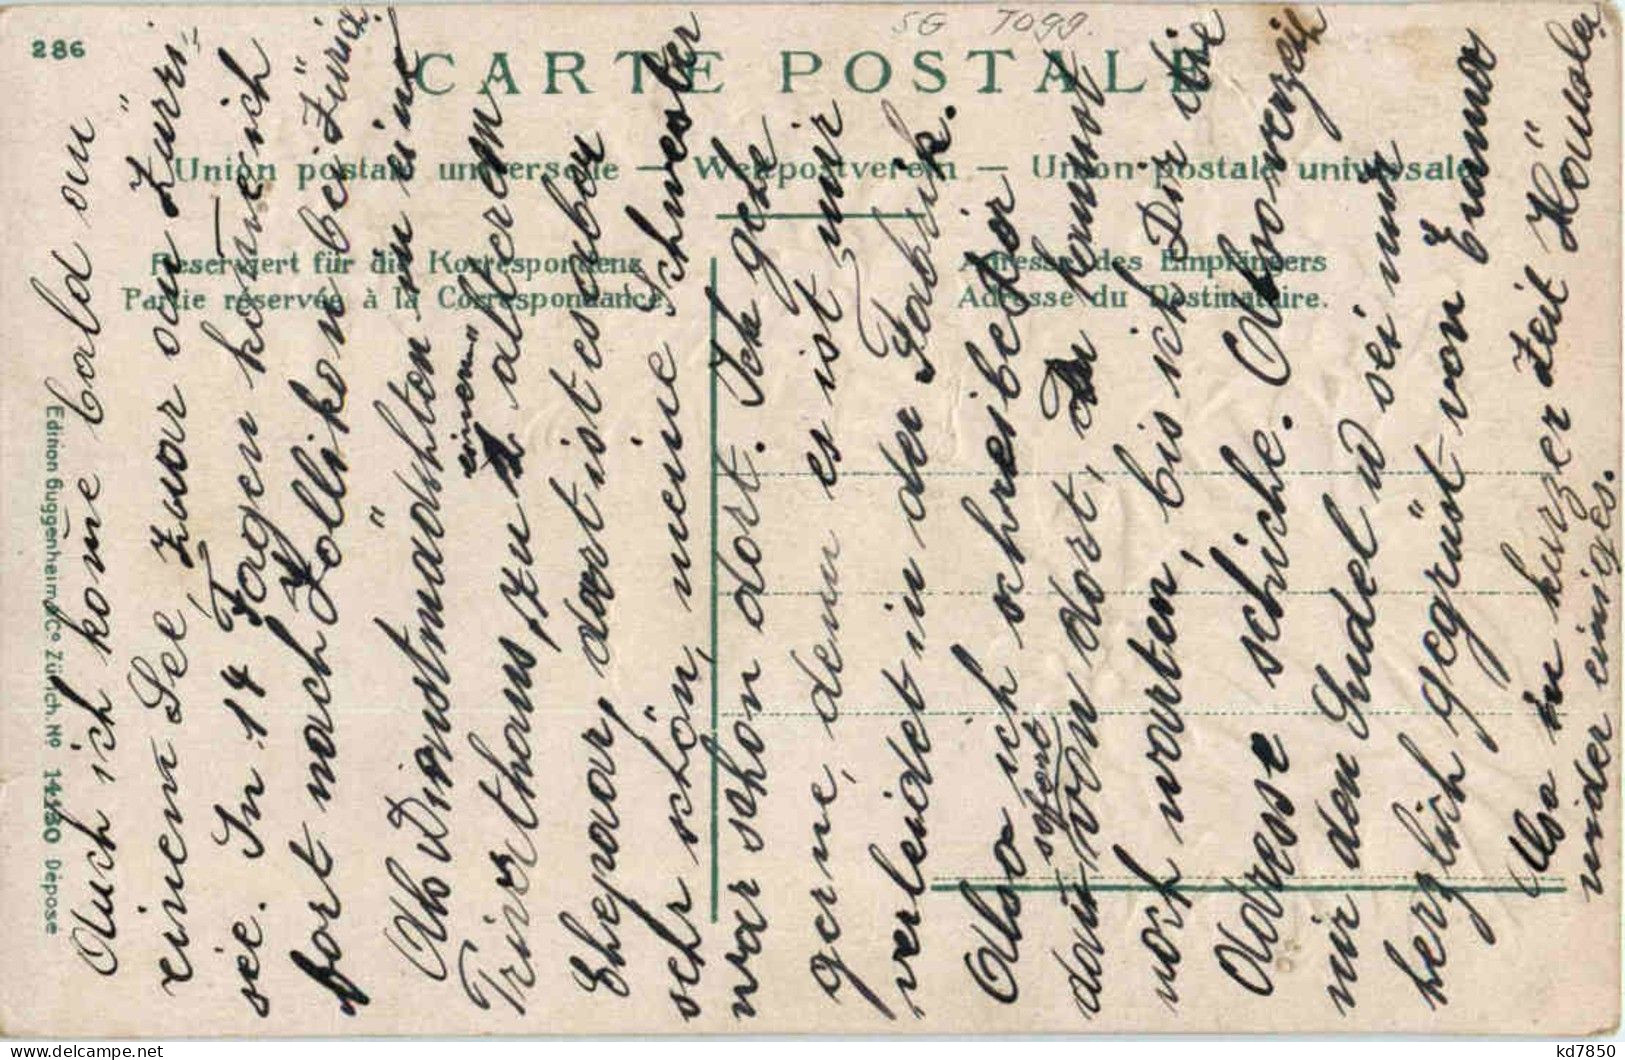 286
SG Togg.
CARTE POSTALE
Union postale universelle — Weltpostverein — Union postale universale
Reserviert für die Korrespondenz
Partie réservée à la Correspondance.
Adresse des Empfängers
Adresse du Destinataire.
Edition Guggenheim & Co Zürich. No 14180 Déposé
Auch ich kome bald an
einem See, zwar am Züri=
see. In 14 Tagen kome ich
fort nach Zollikon bei Zürich
Als Dienstmädchten in ein
zu einem älterem
Ehepaar, dort ist es aber
sehr schön, meine Schwester
war schon dort. Ich gehe
gerne, denn es ist mir
verleidet in der Fabrik.
Also ich schreibe Dir
dann sofort von dort, Du kannst
noch warten, bis ich Dir die
Adresse schicke. Also verzeih
mir den Sudel u sei mir
herzlich gegrüst von Emma
Also in kurzer Zeit Häusler
wider einiges.
kd7850